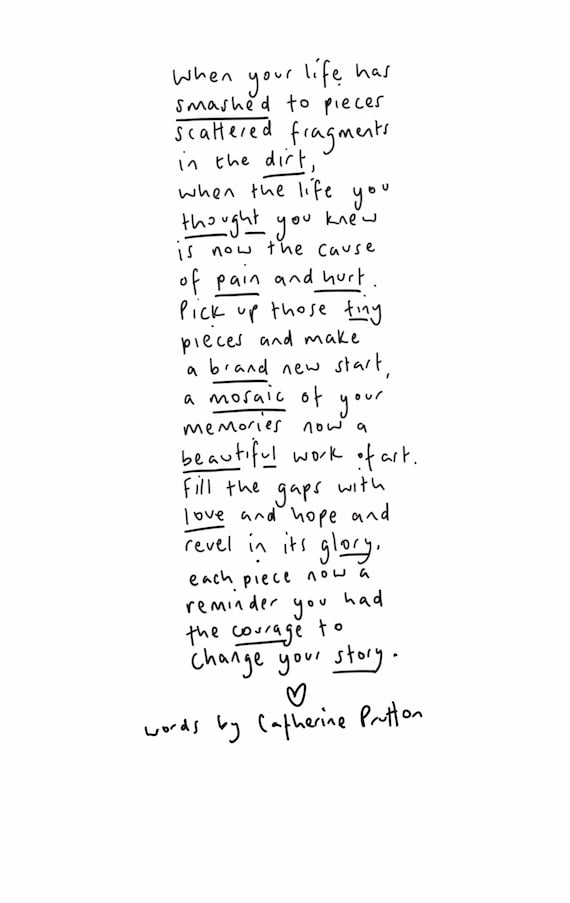 When your life has
smashed to pieces
scattered fragments
in the dirt,
when the life you
thought you knew
is now the cause
of pain and hurt.
Pick up those tiny
pieces and make
a brand new start,
a mosaic of your
memories now a
beautiful work of art.
Fill the gaps with
love and hope and
revel in its glory,
each piece now a
reminder you had
the courage to
change your story.
♡
words by Catherine Prutton